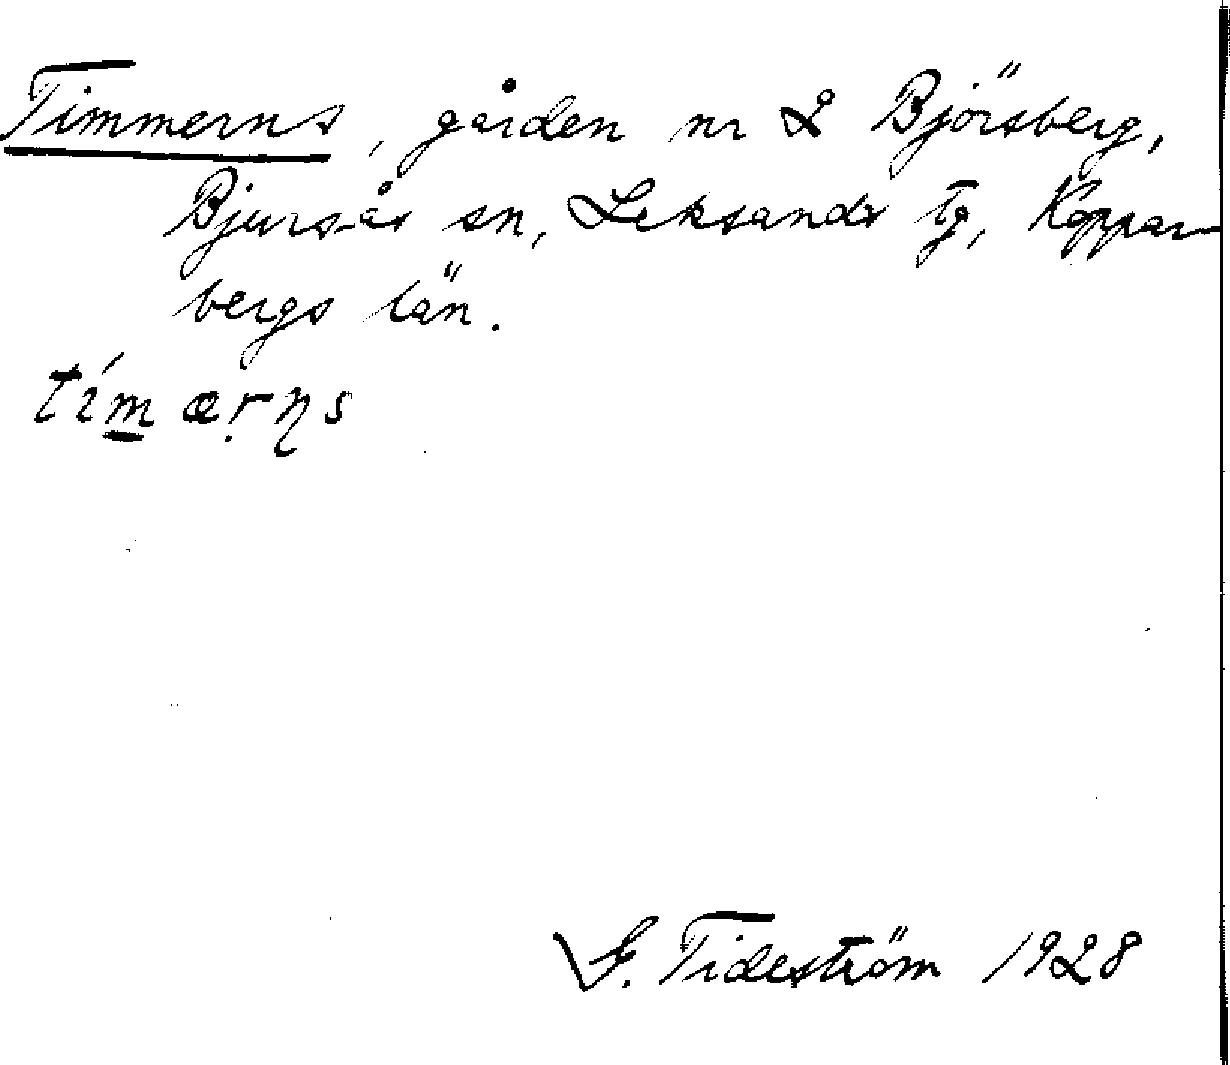 Timmerns, gården nr 2 Björsberg,
Bjursås sn, Leksands tg, Koppar-
bergs län.
tím̲æṛṇs
G. Tideström 1928